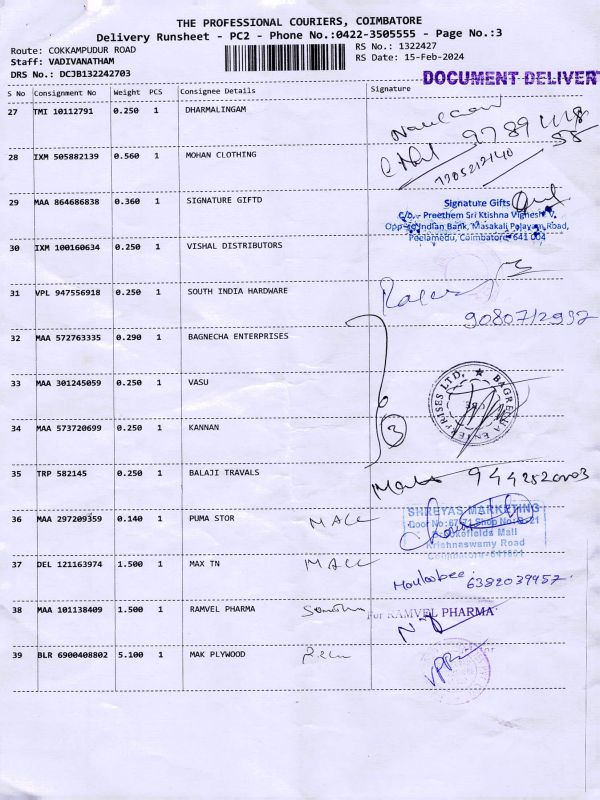 THE PROFESSIONAL COURIERS, COIMBATORE
Delivery Runsheet - PC2 - Phone No.:0422-3505555 - Page No.:3
Route: COKKAMPUDUR ROAD
RS No.: 1322427
Staff: VADIVANATHAM
RS Date: 15-Feb-2024
DRS No.: DCJB132242703
DOCUMENT DELIVER
S No Consignment No Weight PCS Consignee Details Signature
27 TMI 10112791 0.250 1 DHARMALINGAM
28 IXM 505882139 0.560 1 MOHAN CLOTHING
29 MAA 864686838 0.360 1 SIGNATURE GIFTD
Signature Gifts
C/o. Preethem Sri Ktishna Vignesh V.
Opp to Indian Bank, Masakali Palayam Road,
Peelamedu, Coimbatore-641 004
30 IXM 100160634 0.250 1 VISHAL DISTRIBUTORS
31 VPL 947556918 0.250 1 SOUTH INDIA HARDWARE
9080712992
32 MAA 572763335 0.290 1 BAGNECHA ENTERPRISES
33 MAA 301245059 0.250 1 VASU
34 MAA 573720699 0.250 1 KANNAN
3
35 TRP 582145 0.250 1 BALAJI TRAVALS
36 MAA 297209359 0.140 1 PUMA STOR MALL
SHREYAS MARKETING
Krishnaswamy Road
37 DEL 121163974 1.500 1 MAX TN MALL
6382039457
38 MAA 101138409 1.500 1 RAMVEL PHARMA
For RAMVEL PHARMA
39 BLR 6900408802 5.100 1 MAK PLYWOOD